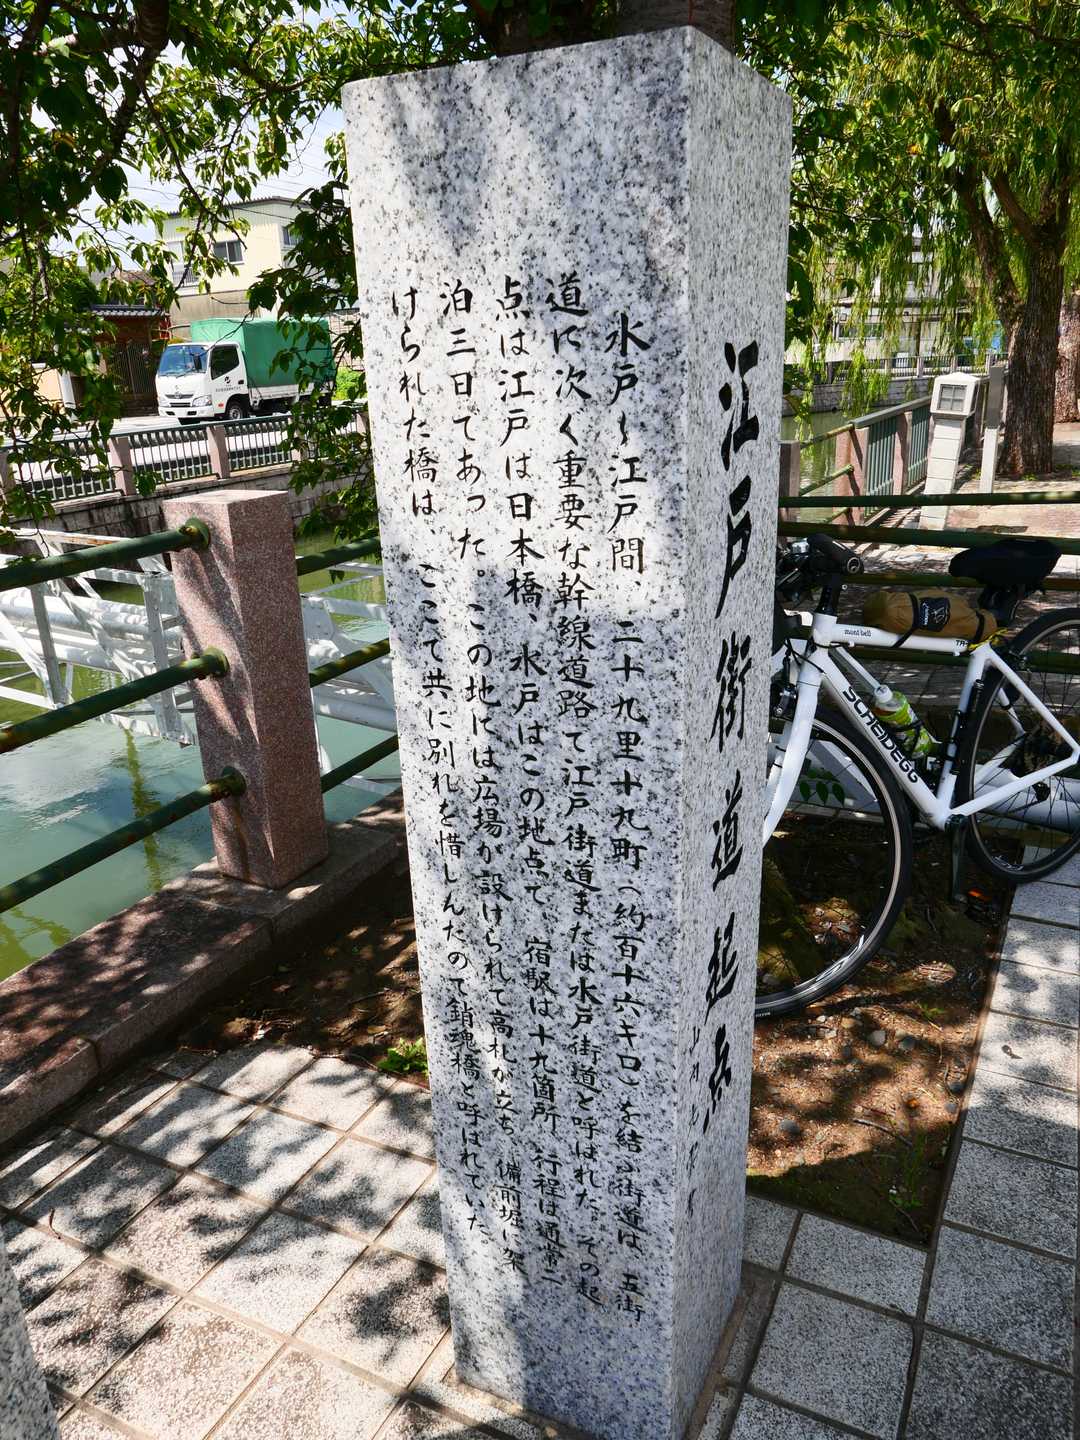 江戸街道起点
水戸〜江戸間、二十九里十九町(約百十六キロ)を結ぶ街道は、五街
道に次く重要な幹線道路て江戸街道または水戸街道と呼ばれた。その起
点は江戸は日本橋、水戸はこの地点て、宿駅は十九箇所、行程は通常二
泊三日てあった。この地には広場が設けられて高札が立ち、備前堀に架
けられた橋は、ここて共に別れを惜しんたのて銷魂橋と呼はれていた。
mont bell
SCHEIDEGG